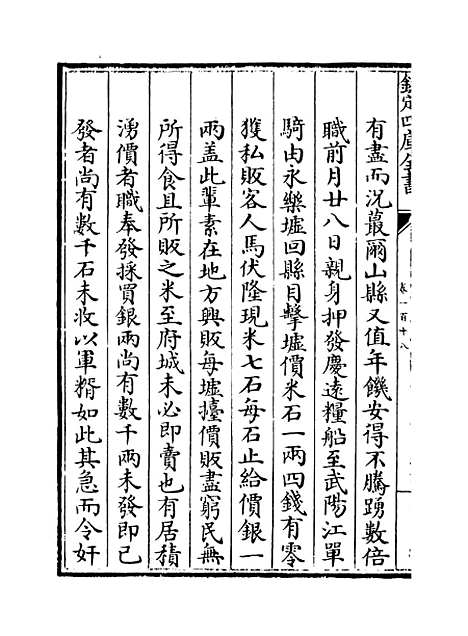 欽定四庫全書
卷一百十八
有盡而況蕞爾山縣又值年饑安得不騰踴數倍
職前月廿八日親身押發慶遠糧船至武陽江單
騎由永樂墟回縣目擊墟價米石一兩四錢有零
獲私販客人馬伏隆現米七石每石止給價銀一
兩盖此輩素在地方興販每墟擡價販盡窮民無
所得食且所販之米至府城未必即賣也有居積
湧價者職奉發採買銀兩尚有數千兩未發即已
發者尚有數千石未收以軍糈如此其急而令奸